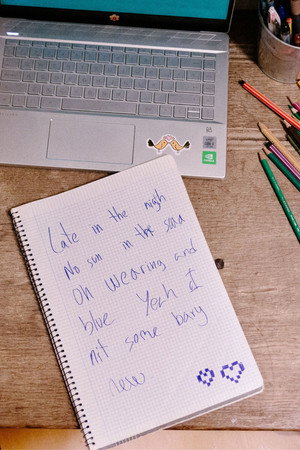 Late in the nigh
No sun in the
Oh wearing and
blue Yeah I
nit some bary
new